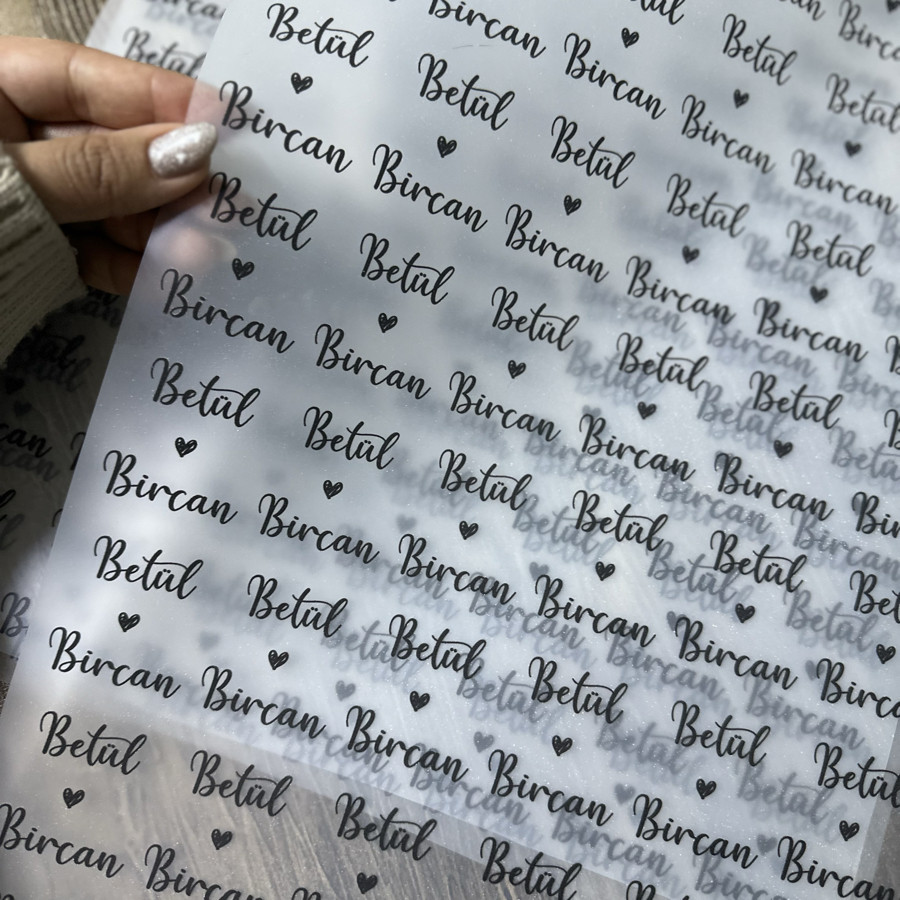 Betül Betül
Bircan Bircan Bircan Bircan
Betül Betül Betül Betül Betül
Bircan Bircan Bircan Bircan Bircan
Betül Betül Betül Betül Betül
Bircan Bircan Bircan Bircan Bircan
Betül Betül Betül Betül Betül
Bircan Bircan Bircan Bircan Bircan
Betül Betül Betül Betül Betül Betül
Bircan Bircan Bircan Bircan Bircan Bircan
Betül Betül Betül Betül
Bircan Bircan